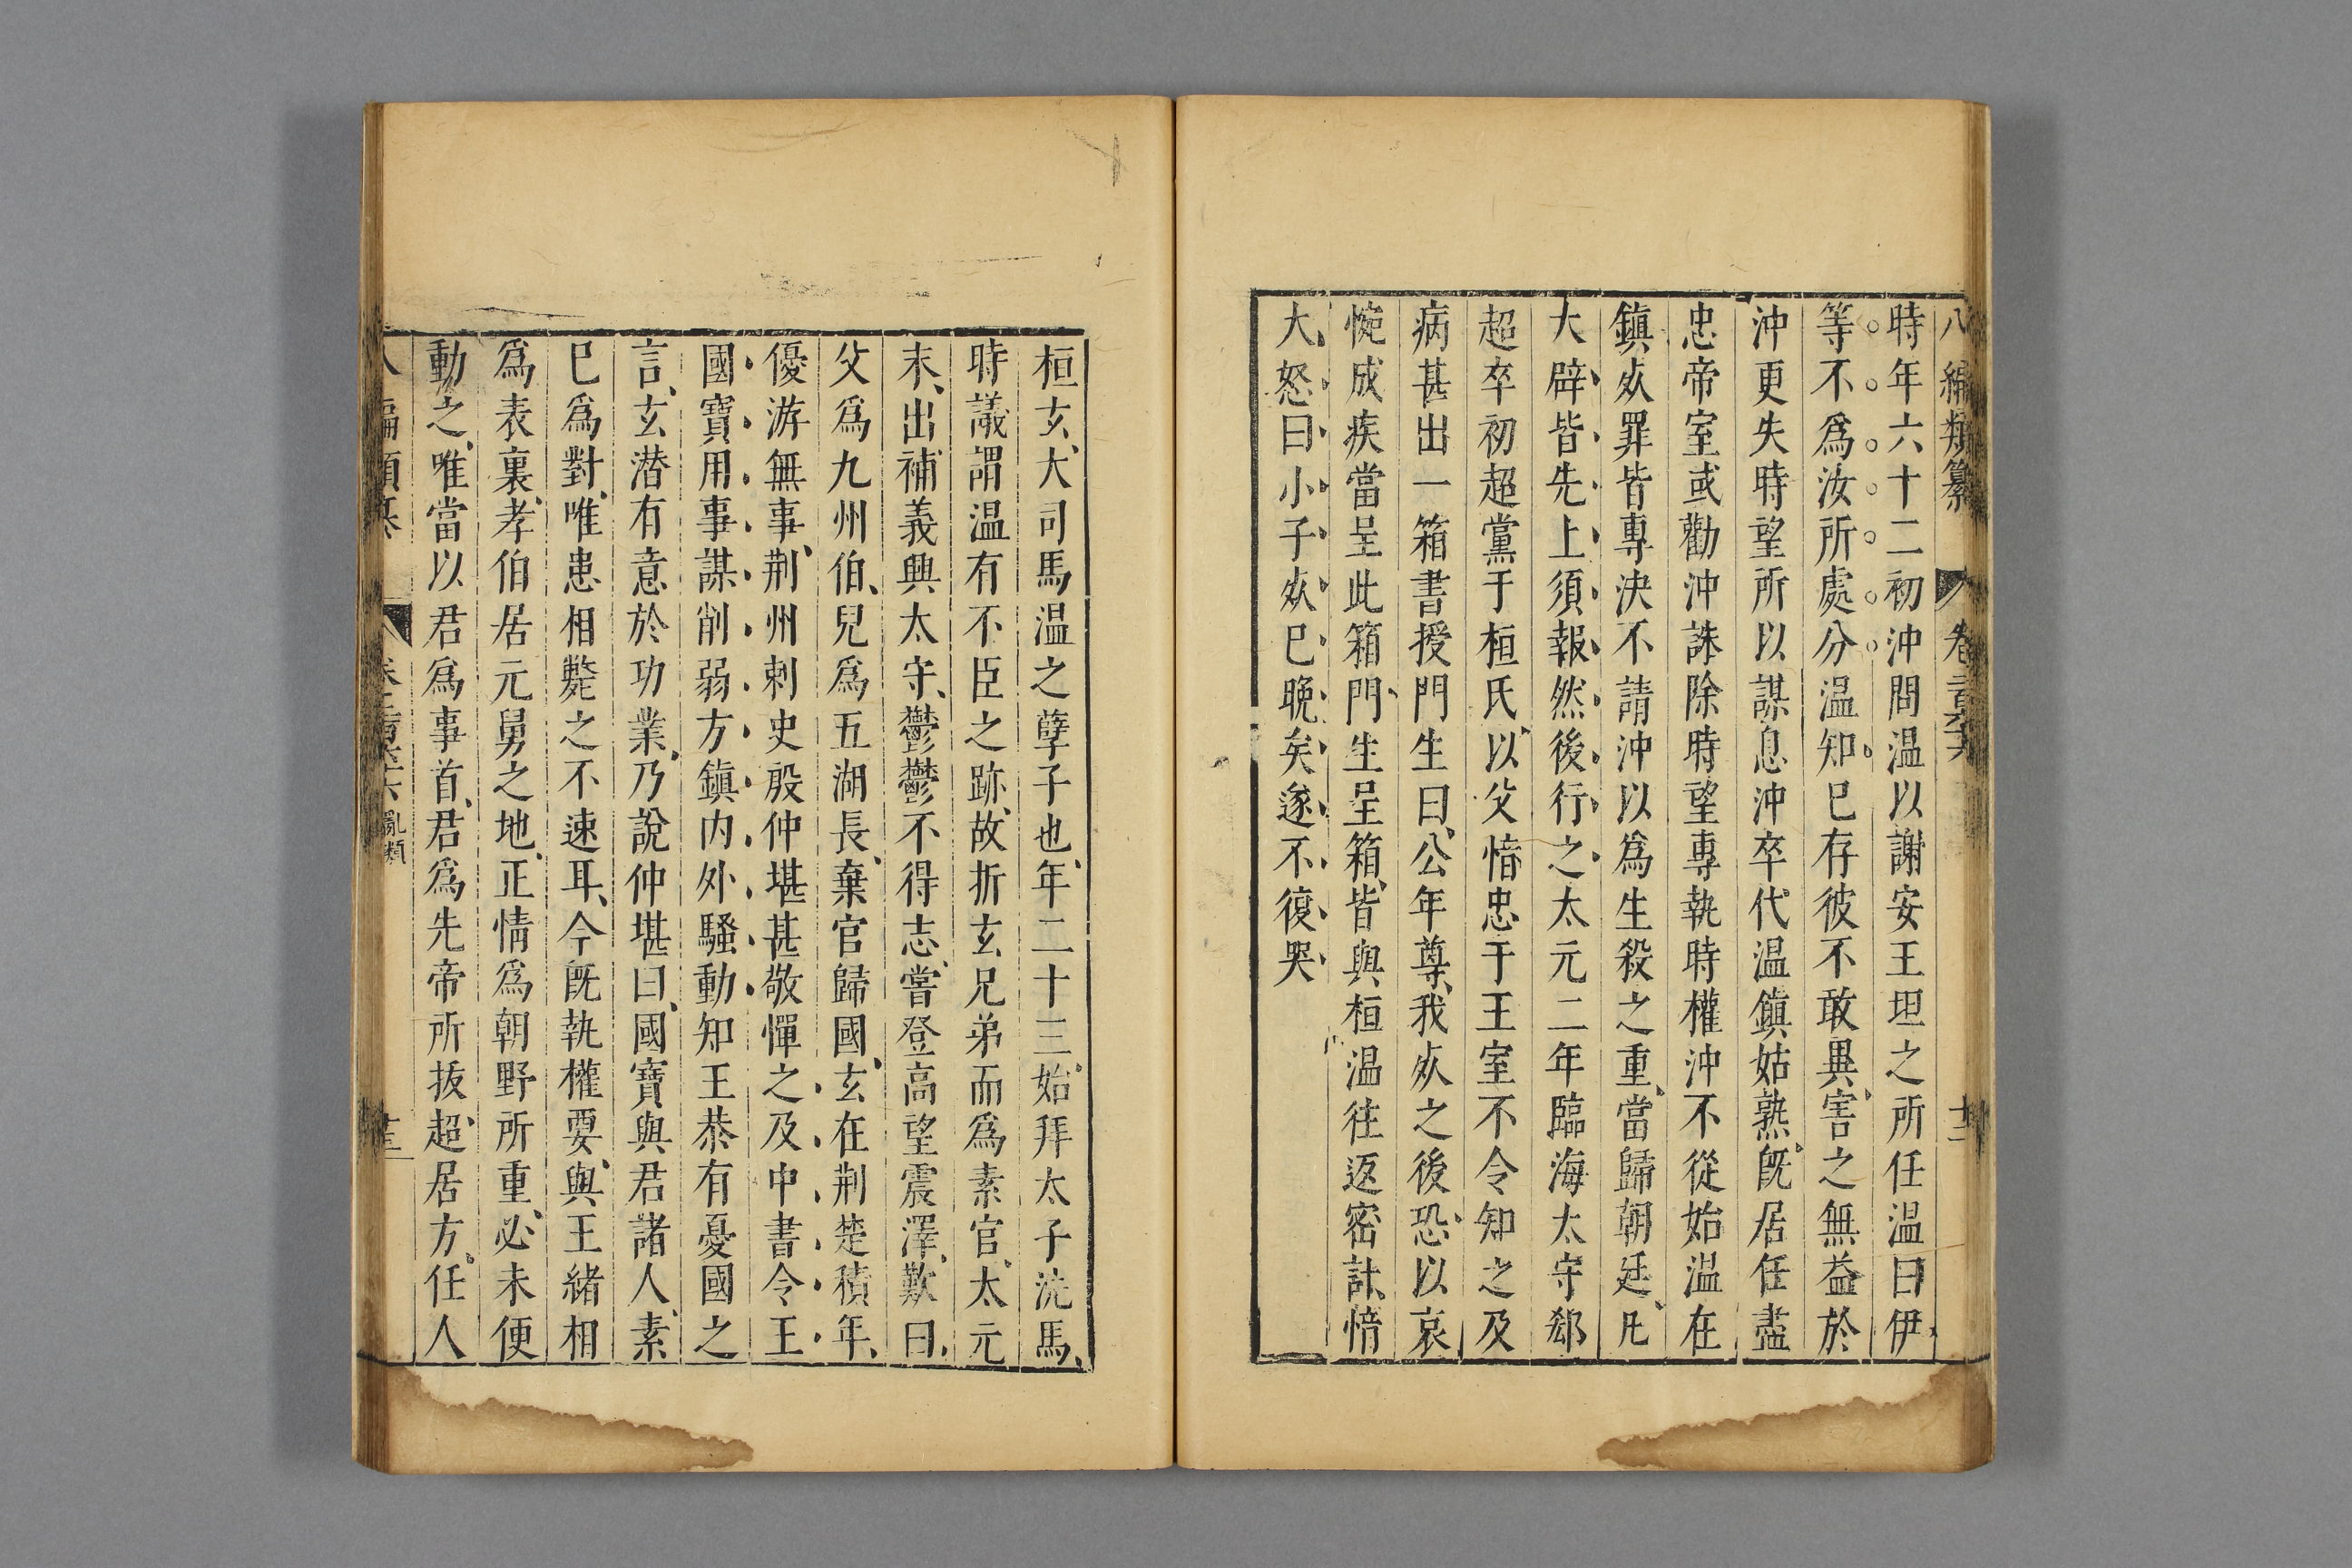 八編類纂 卷二百六十六 十二
時年六十二初沖問温以謝安王坦之所任温曰伊
等不爲汝所處分温知已存彼不敢異害之無益於
沖更失時望所以謀息沖卒代温鎮姑熟既居任盡
忠帝室或勸沖誅除時望專執時權沖不從始温在
鎮死罪皆專決不請沖以爲生殺之重當歸朝廷凡
大辟皆先上須報然後行之太元二年臨海太守郄
超卒初超黨于桓氏以父愔忠于王室不令知之及
病甚出一箱書授門生曰公年尊我死之後恐以哀
惋成疾當呈此箱門生呈箱皆與桓温往返密計愔
大怒曰小子死已晚矣遂不復哭
桓玄大司馬温之孽子也年二十三始拜太子洗馬
時議謂温有不臣之跡故折玄兄弟而爲素官太元
末出補義興太守鬱鬱不得志嘗登高望震澤歎曰
父爲九州伯兒爲五湖長棄官歸國玄在荆楚積年
優游無事荆州刺史殷仲堪甚敬憚之及中書令王
國寶用事謀削弱方鎮内外騷動知王恭有憂國之
言玄潜有意於功業乃說仲堪曰國寶與君諸人素
已爲對唯患相斃之不速耳今既執權要與王緒相
爲表裏孝伯居元舅之地正情爲朝野所重必未便
動之唯當以君爲事首君爲先帝所拔超居方任人
八編類纂 卷二百六十六 亂類 十三